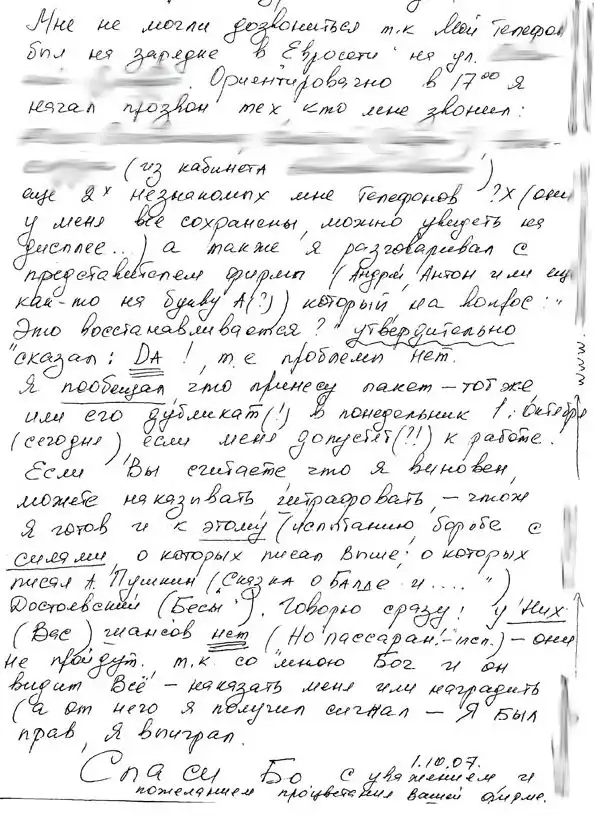 Мне не могли дозвониться т.к. мой телефон
был на зарядке в Евросети на ул.
Ориентировочно в 17⁰⁰ я
начал прозвон тех, кто мне звонил:
(из кабинета )
еще 2х незнакомых мне телефонов ?X (они
у меня все сохранены, можно увидеть на
дисплее...) а также я разговаривал с
представителем фирмы (Андрей, Антон или еще
как-то на букву А(?)) который на вопрос: "
Это восстанавливается?" утвердительно
"сказал: DA!, т.е проблемы нет.
Я пообещал, что принесу пакет – тот же
или его дубликат(!) в понедельник 1. Октября
(сегодня) если меня допустят(?!) к работе.
Если Вы считаете что я виновен,
можете наказывать, штрафовать, –
Я готов и к этому (испытанию, борьбе с
силами, о которых писал выше, о которых
писал А. Пушкин (Сказка о Балде и .... ")
Достоевский (Бесы"). Говорю сразу! у Них
(Вас) шансов нет (Но пассаран! – исп.) – они
не пройдут, т.к. со мною Бог и он
видит Всё – наказать меня или наградить
(а от него я получил сигнал – Я был
прав, Я выиграл.
1.10.07.
Спаси Бо с уважением и
пожеланием процветания вашей фирме.
www.